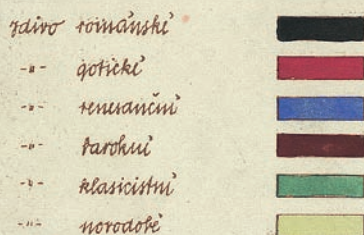 zdivo románské
-"- gotické
-"- renesanční
-"- barokní
-"- klasicistní
-"- novodobé